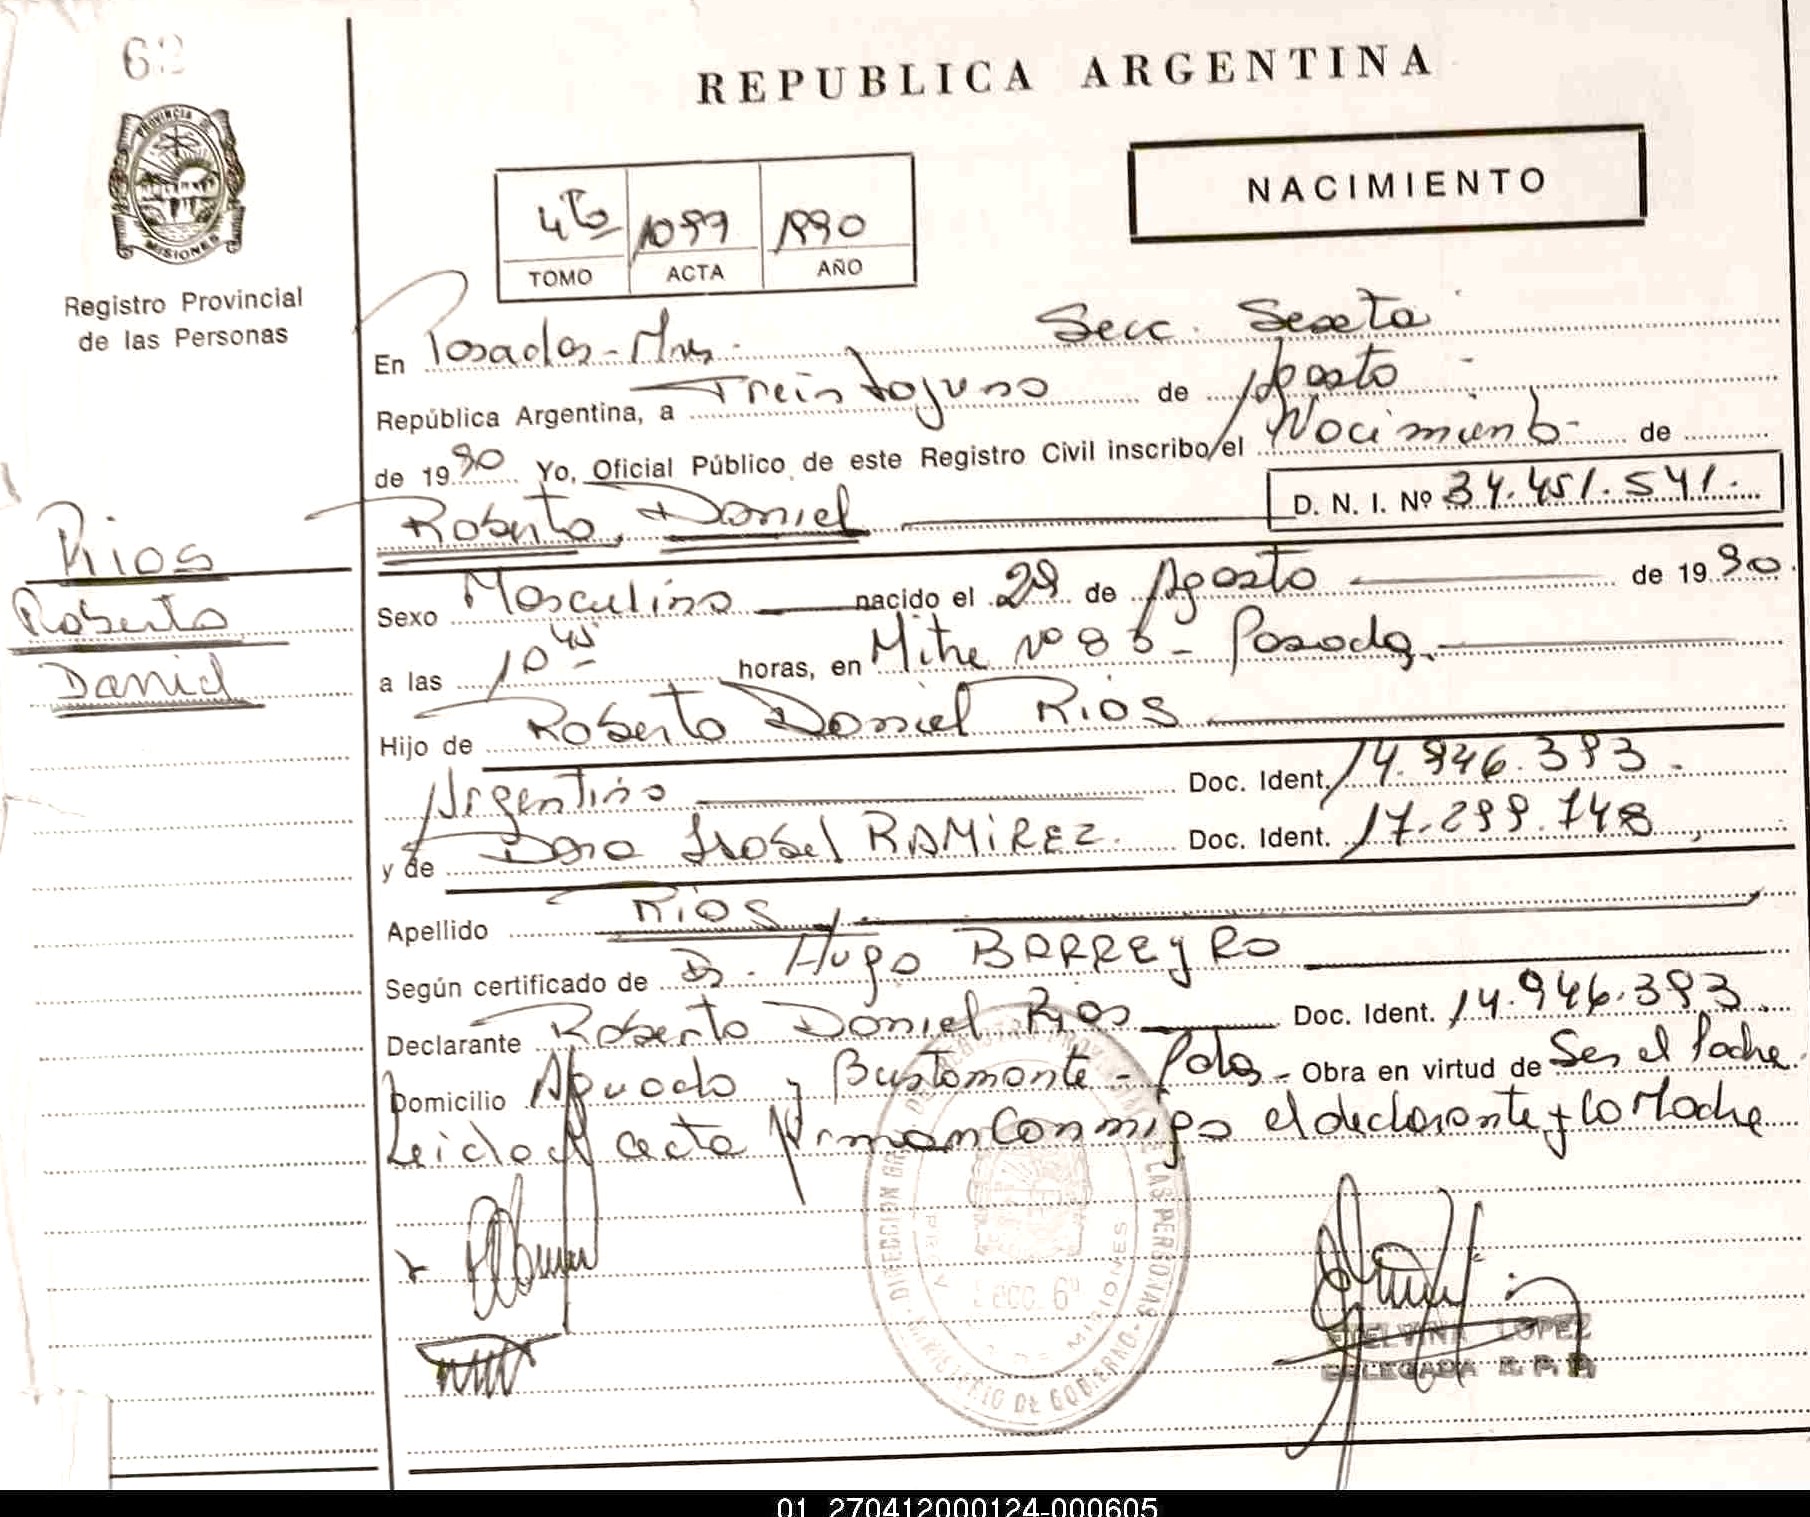 62
REPUBLICA ARGENTINA
PROVINCIA DE
MISIONES
Registro Provincial
de las Personas
4to 1099 1990
TOMO ACTA AÑO
NACIMIENTO
En Posadas - Mnes. Secc. Sexta
República Argentina, a Treintayuno de Agosto
de 1990 Yo, Oficial Público de este Registro Civil inscribo/el Nacimiento de
Roberto, Daniel D. N. I. Nº 34.451.541.
Rios
Roberto
Daniel
Sexo Masculino nacido el 29 de Agosto de 1990.
a las 10 45 horas, en Mitre Nº 83 - Posadas.
Hijo de Roberto Daniel Rios
Argentino Doc. Ident. 14.946.393.
y de Dora Isabel RAMIREZ. Doc. Ident. 17.299.748,
Apellido Rios
Según certificado de Dr. Hugo BARREyRO
Declarante Roberto Daniel Rios Doc. Ident. 14.946.393.
Domicilio Aguado y Bustamante - Pdas - Obra en virtud de Ser el Padre.
Leida el acta firman conmigo el declarante y la Madre
DIRECCION GRAL. DEL REGISTRO PROVINCIAL DE LAS PERSONAS
Secc. 6ª
MISIONES
MINISTERIO DE GOBIERNO
ETELVINA LOPEZ
DELEGADA R. P. P.
01_270412000124-000605